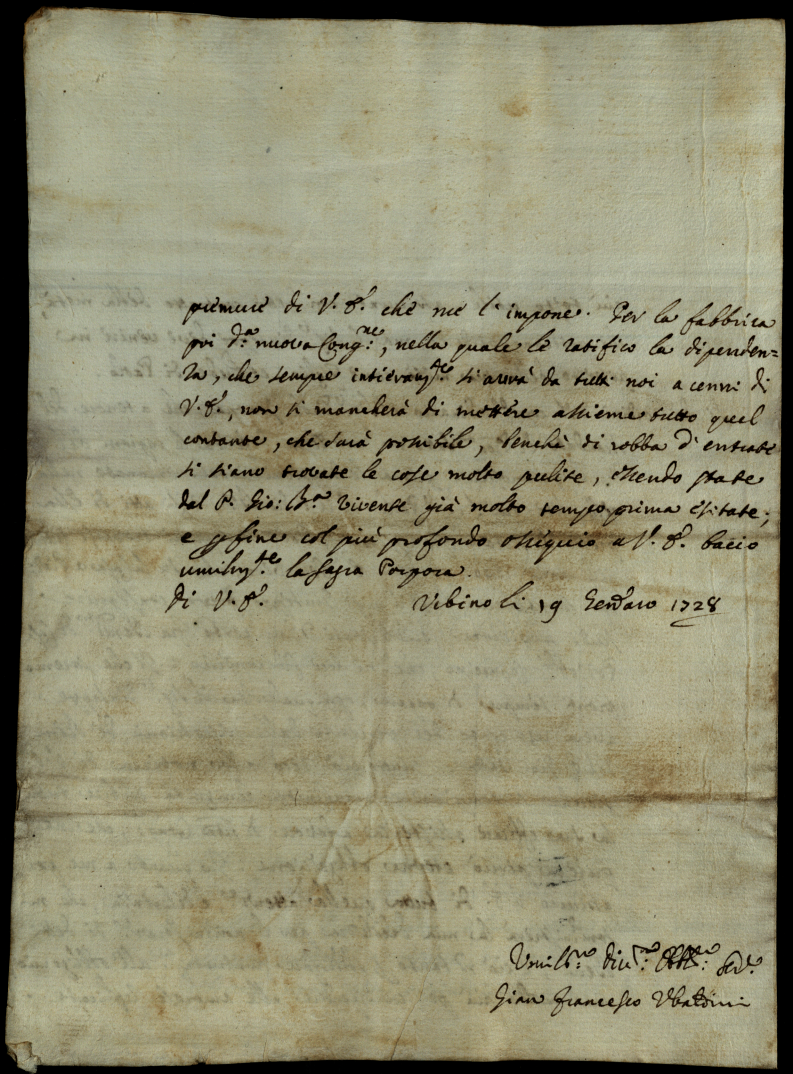 premure di V. E. che me l'impone. Per la fabbrica
poi d.ª nuova Cong.ne, nella quale le ratifico la dipenden=
za, che sempre intieram.te si avrà da tutti noi a cenni di
V. E., non si mancherà di mettere assieme tutto quel
contante, che sarà possibile, benchè di robba d'entrate
si siano trovate le cose molto pulite, essendo state
dal P. Gio: B.a vivente già molto tempo prima esitate;
e p fine col più profondo ossequio a V. E. bacio
umilm.te la Sagra Porpora.
di V. E. Urbino li 19 Genaro 1728
Umilis.mo Div.mo Obblig.mo Ser.e
Gian Francesco Ubaldini